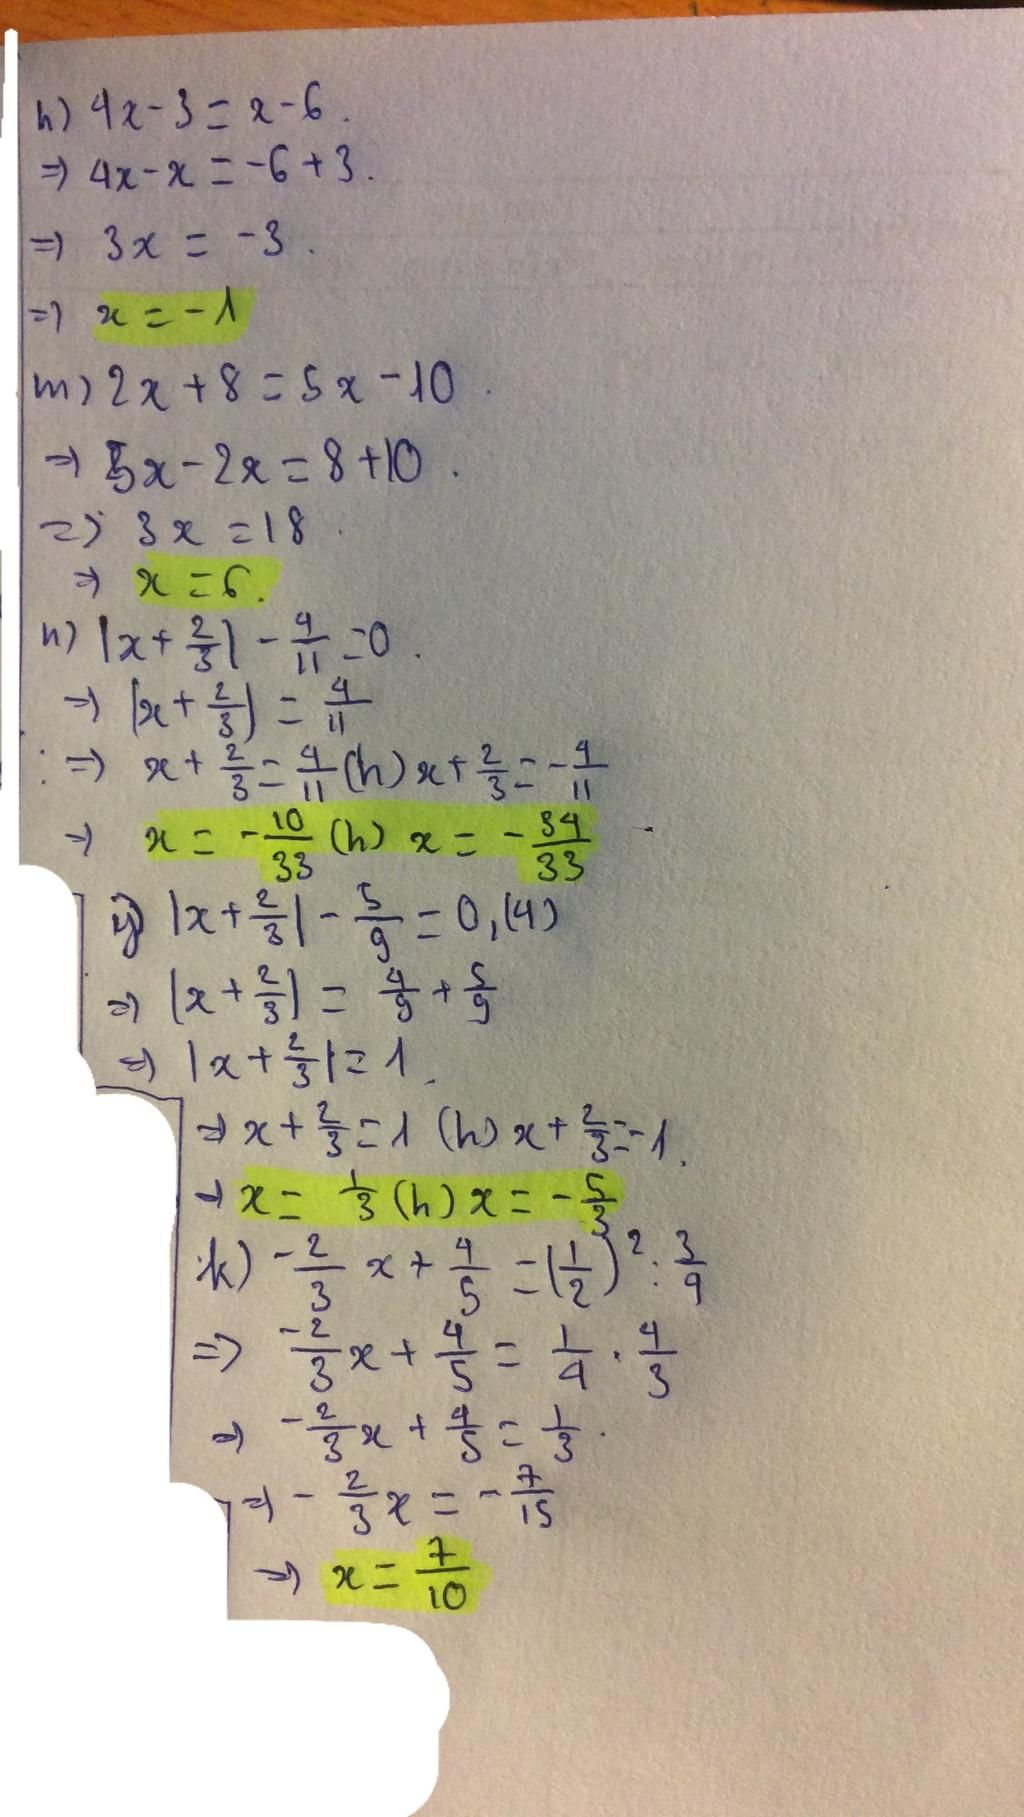 h) 4x - 3 = x - 6.
=> 4x - x = -6 + 3.
=> 3x = -3.
=> x = -1
m) 2x + 8 = 5x - 10.
=> 5x - 2x = 8 + 10.
=> 3x = 18.
=> x = 6.
n) |x + 2/3| - 4/11 = 0.
=> |x + 2/3| = 4/11
=> x + 2/3 = 4/11 (h) x + 2/3 = -4/11
=> x = -10/33 (h) x = -34/33
|x + 2/3| - 5/9 = 0,(4)
=> |x + 2/3| = 4/9 + 5/9
=> |x + 2/3| = 1.
=> x + 2/3 = 1 (h) x + 2/3 = -1.
=> x = 1/3 (h) x = -5/3
k) -2/3 x + 4/5 = (1/2)² : 3/4
=> -2/3 x + 4/5 = 1/4 . 4/3
=> -2/3 x + 4/5 = 1/3.
=> -2/3 x = -7/15
=> x = 7/10